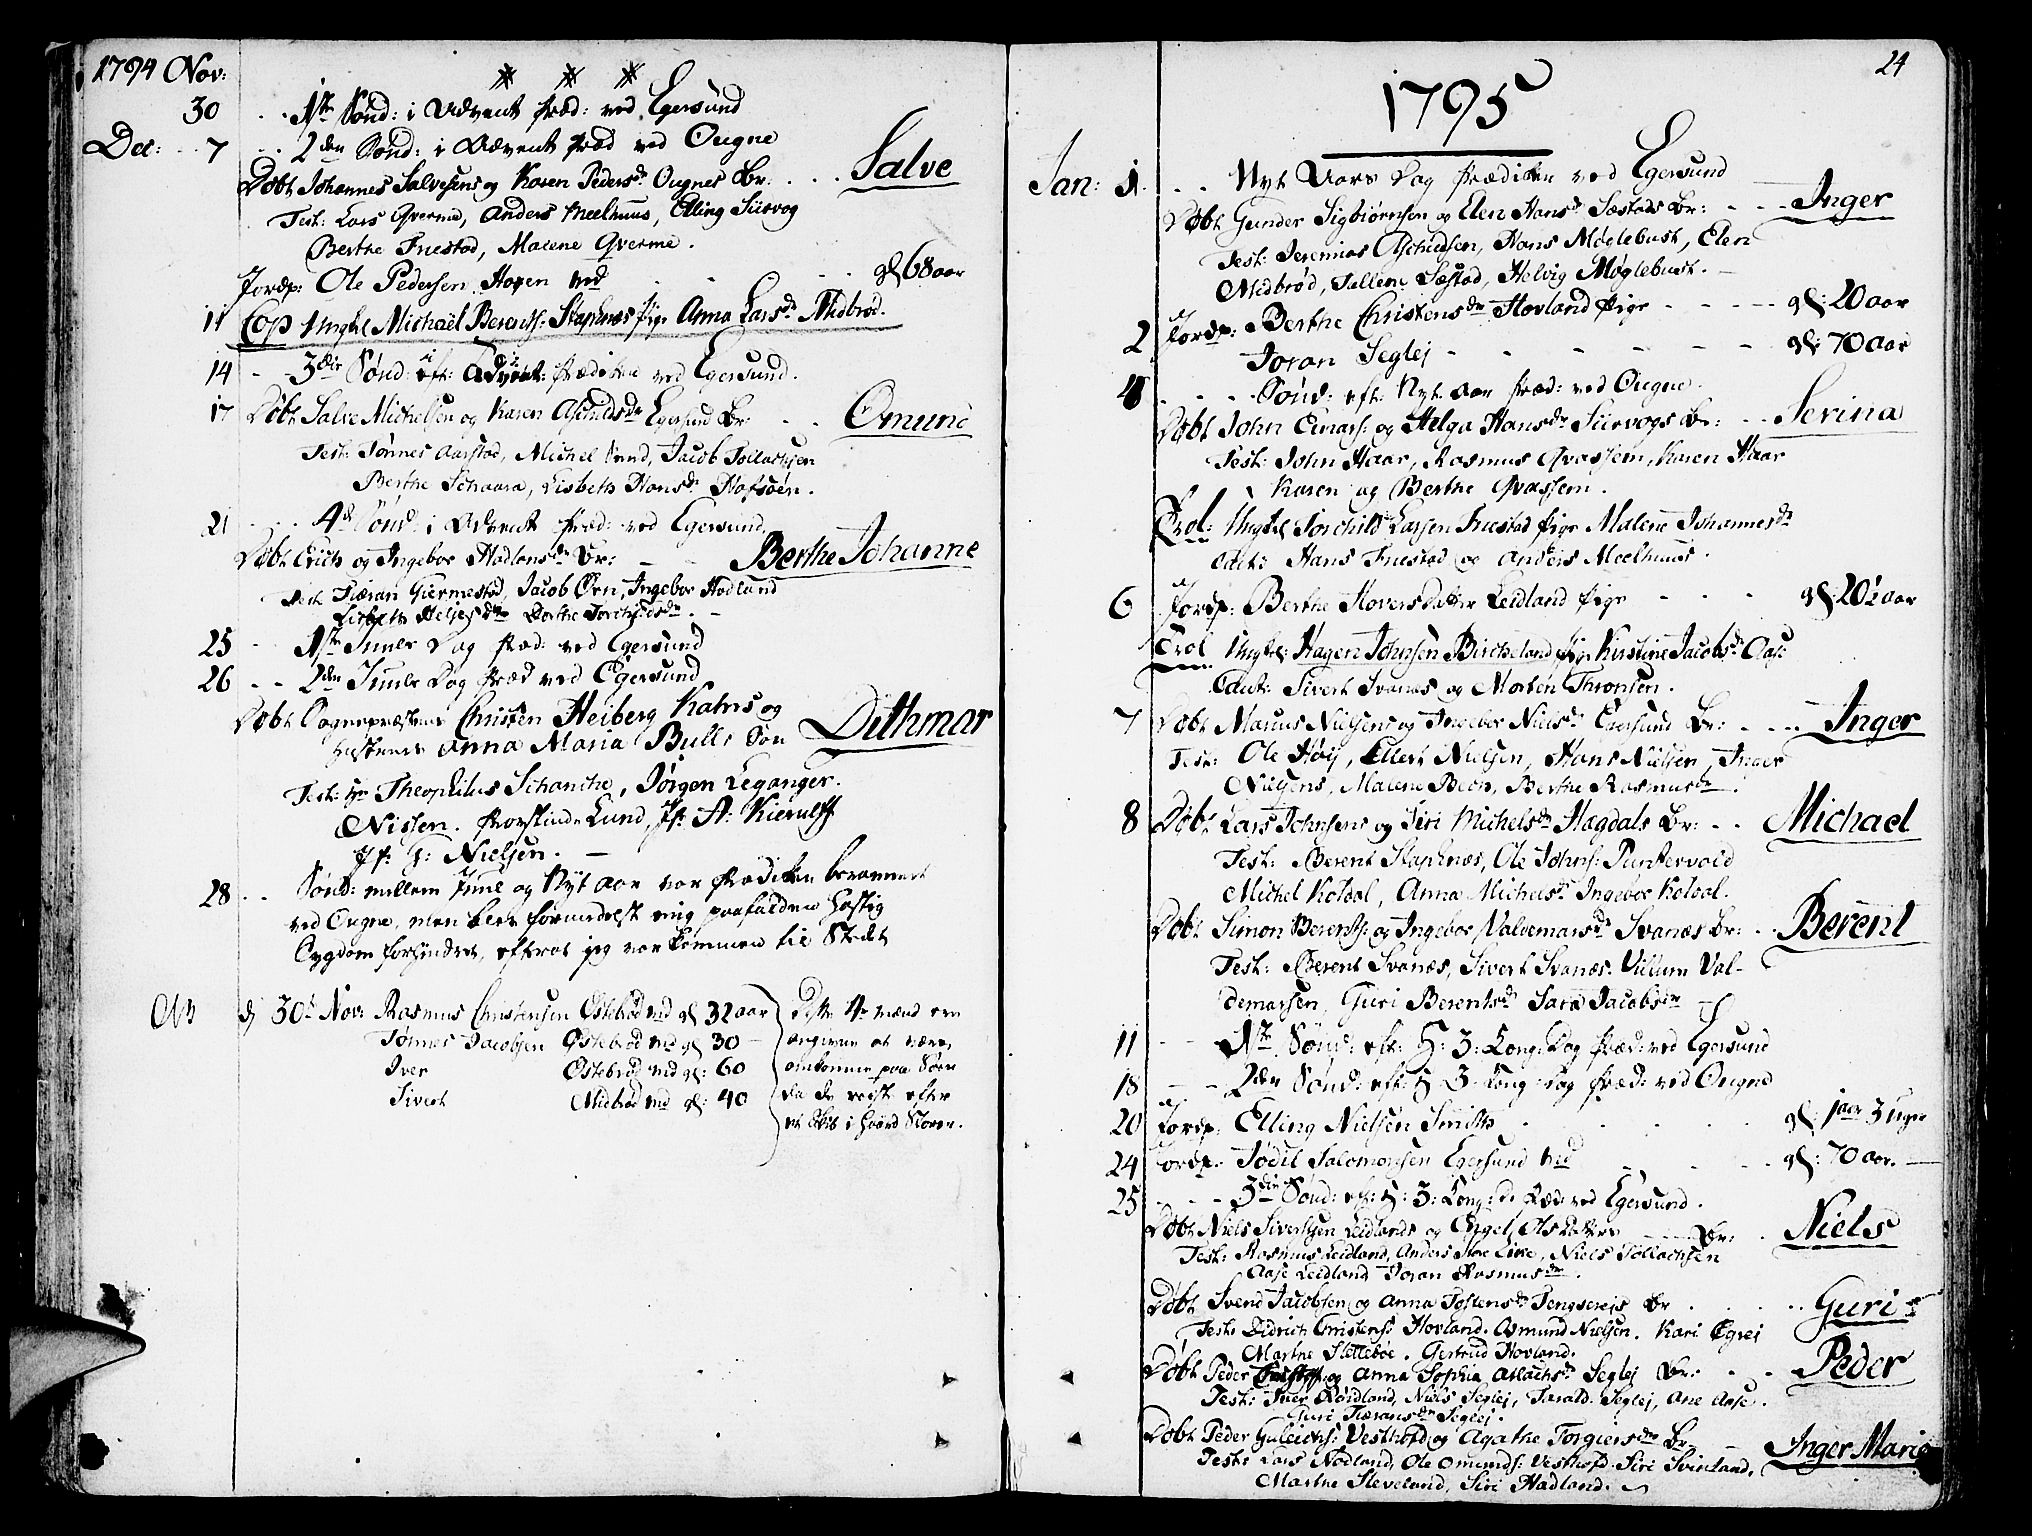 1794 Nov:
30 . . 1ste Sønd: i Advent præd: ved Egersund
Dec: . . 7 . . 2den Sønd: i Advent præd ved Ougne
Døbt Johannes Salvesens og Karen Pedersdr Ougnes Br: . . . Salve
Test: Lars Qverme, Anders Meelhuus, Elling Siirvog
Berthe Fuestad, Malene Qverme.
Jordp: Ole Pedersen Hogen md . . . gl 68 aar
11 Cop Ungkl Michaël Berents: Staphnes pige Anna Larsdr Midbrød.
14 - - 3die Sønd: eft: Advent: prædiken ved Egersund.
17 Døbt Salve Michelsen og Karen Aschildsdr Egersund Br: . . Omund
Test: Tønnes Aarstad, Michel Svend, Jacob Tollachsen
Berthe Schaara, Lisbeth Hansdr Hofsøen.
21 . . . 4de Sønd: i Advent præd: ved Egersund
Døbt Erich og Ingebor Hadlandsdr Br: - - Berthe Johanne
Test Tiæran Giermestad, Jacob Ørn, Ingebor Hadland
Lisbeth Heljesdr Dorthe Torchildsdr. -
25 - 1ste Juule Dag præd: ved Egersund
26 . . 2den Juule Dag præd ved Egersund
Døbt Sognepræsten Christen Heiberg Kahrs og
Hustrue Anna Maria Bulls Søn Dithmar
Test: Hr Theophilus Schanche, Jørgen Leganger.
Nissen. Provstinde Lund, Jfr A: Kierulff
Jfr: G: Nielsen. -
28 . . Sønd: mellem Juul og Nyt aar var Prædiken berammet
ved Ougne, men blev formedelst mig paafalden hastig
Sygdom forhindret, efterat jeg var kommen til Stedet
NB d 30te Nov: Rasmus Christensen Østebrød md gl 32 aar Disse 4re mænd ere
Tønnes Jacobsen Østebrød md gl 30 - angivne at være
Iver Østebrød md gl: 60 omkomne paa Søen
Sivert Midbrød md gl: 40 da de reiste efter
et Skib i haard Storm.
24
1795
Jan: 1. . . Nyt Aars Dag Prædiken ved Egersund
Døbt Gunder Sigbiørnsen og Elen Hansdr Sæstads Br: - - - Inger
Test: Jeremias Aschildsen, Hans Møglebust, Elen
Midbrød, Tallene Sæstad, Helvig Møglebust. -
Jordp: Berthe Christensdr Hovland pige - - - - gl: 20 aar
2 Joran Seglej - - - - - gl: 70 aar
4 . . . . Sønd: eft: Nyt aar præd: ved Ougne.
Døbt John Einars: og Helga Hansdr Siirvogs Br: . . Serina
Test: John Haar, Rasmus Qvassem, Karen Haar
Karen og Berthe Qvassem.
Trol: Ungkl Torchild Larsen Fuestad pige Malene Johannesdr
Caut: Hans Fuestad og Anders Meelhuus.
6 Jordp: Berthe Hoversdatter Leidland pige - - - gl: 20½ aar
Trol Ungkl: Hagen Johnsen Bircheland pige Kirstine Jacobsdr Aas:
Caut: Sivert Svanæs og Morten Thronsen.
7 Døbt Marius Nielsens og Ingebor Nielsdr Egersund Br: - . . . . Inger
Test: Ole Høij, Ellert Nielsen, Hans Nielsen, Inger
Nielsens, Malene Beon, Berthe Rasmusdr.
8 Døbt Lars Johnsens og Siri Michelsdr Hægdals Br: . . Michael
Test: Berent Staphnæs, Ole Johns: Puntervold
Michel Koldal, Anna Michelsdr Ingebor Koldal.
Døbt Simon Berents: og Ingebor Valdemarsdr Svanæs Br: . . Berent
Test: Berent Svanæs, Sivert Svanæs. Villum Val-
demarsen, Guri Berentsdr Sara Jacobsdr
11 - - 1ste Sønd: eft: H: 3: Kong: Dag præd: ved Egersund
18 - - 2den Sønd: eft: H 3: Kong: Dag præd: ved Ougne
20 Jordp: Elling Nielsen Smith . . . . gl: 1 aar 3 Uger
24 Jordp. Jødil Salomonsen Egersund md - - - gl: 70 aar.
25 . . . 3die Sønd: eft: H: 3: Kong: D: Præd: ved Egersund.
Døbt Niels Sivertsen Leidlands og Engel Ols Datters - Br: . Niels
Test: Rasmus Leidland, Anders Store Live, Niels Tollachsen
Aase Leidland Joran Rasmusdr.
Døbt Svend Jacobsen og Anna Tostensdr Tengsereids Br . . . . Guri -
Test: Didrich Christens: Hovland. Asmund Nielsen. Kari Egrej
Marthe Slettebøe. Gertrud Hovland.
Døbt Peder og Anna Sophia Atlachsdr Seglej Br: . . . Peder
Test: Iver Røidland, Niels Seglej, Tarald Seglej, Ane Aase.
Guri Tiæransdr Seglej.
Døbt Peder Guleichs: Vesthofd og Agathe Torgiersdr Br - - Inger Marie
Test: Lars Nødland, Ole Omunds: Vesthofd. Siri Svindland.
Marthe Sleveland, Siri Hadland.